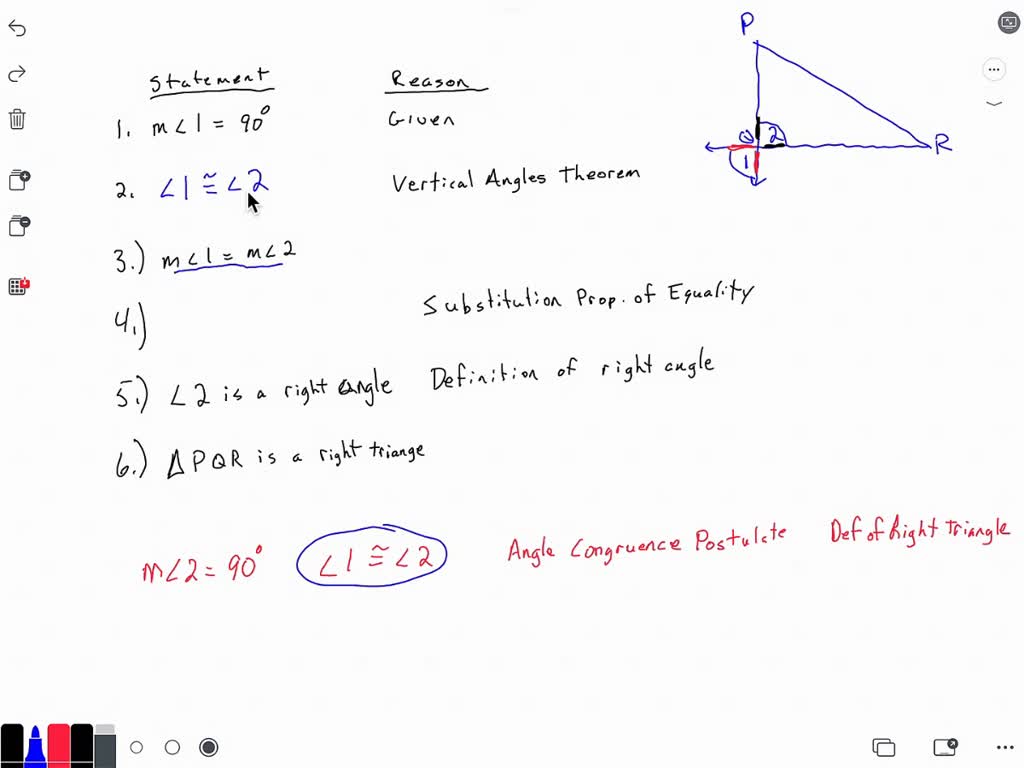 Statement Reason
1. m∠1 = 90° Given
2. ∠1 ≅ ∠2 Vertical Angles Theorem
3.) m∠1 = m∠2
4.) Substitution Prop. of Equality
5.) ∠2 is a right angle Definition of right angle
6.) △PQR is a right triange
m∠2 = 90° ∠1 ≅ ∠2 Angle Congruence Postulate Def of Right Triangle
P
Q 2
R
1